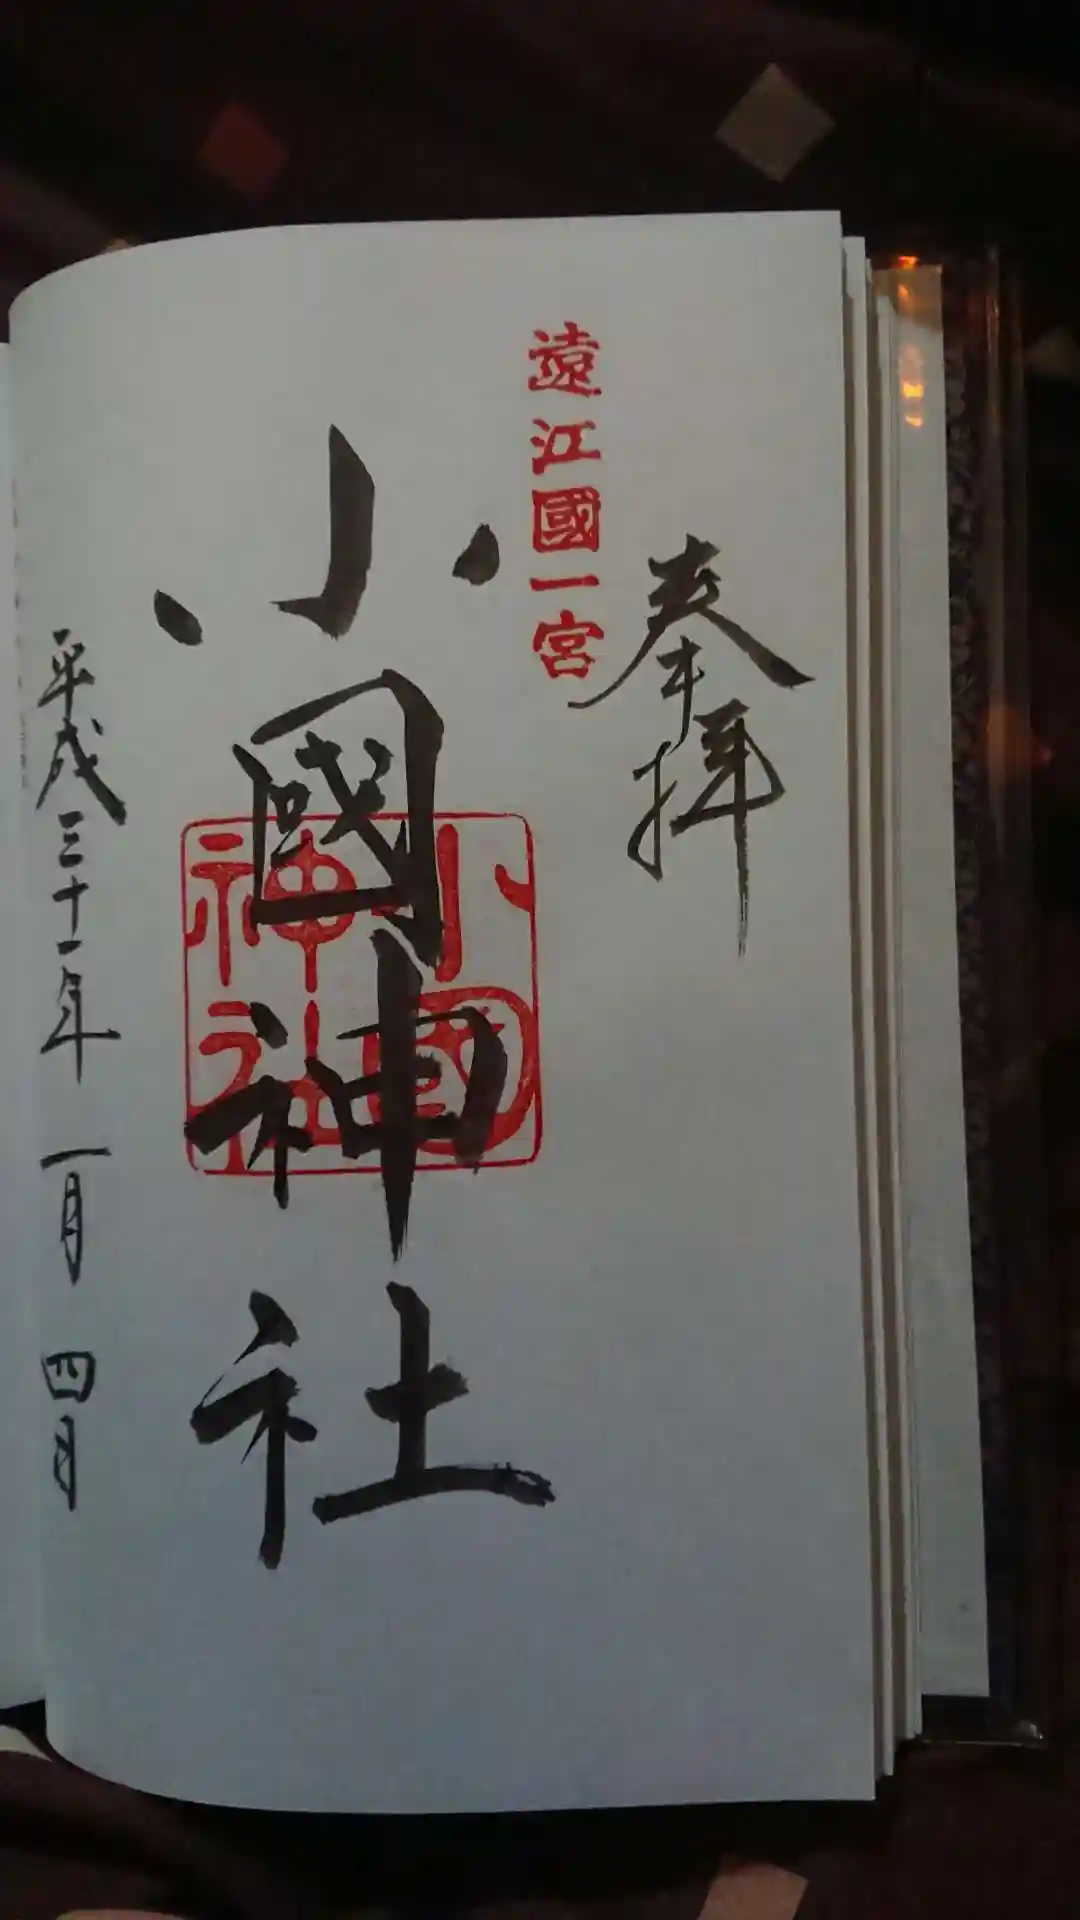 奉拝
遠江國一宮
小國神社
小國
神社
平成三十一年一月四日